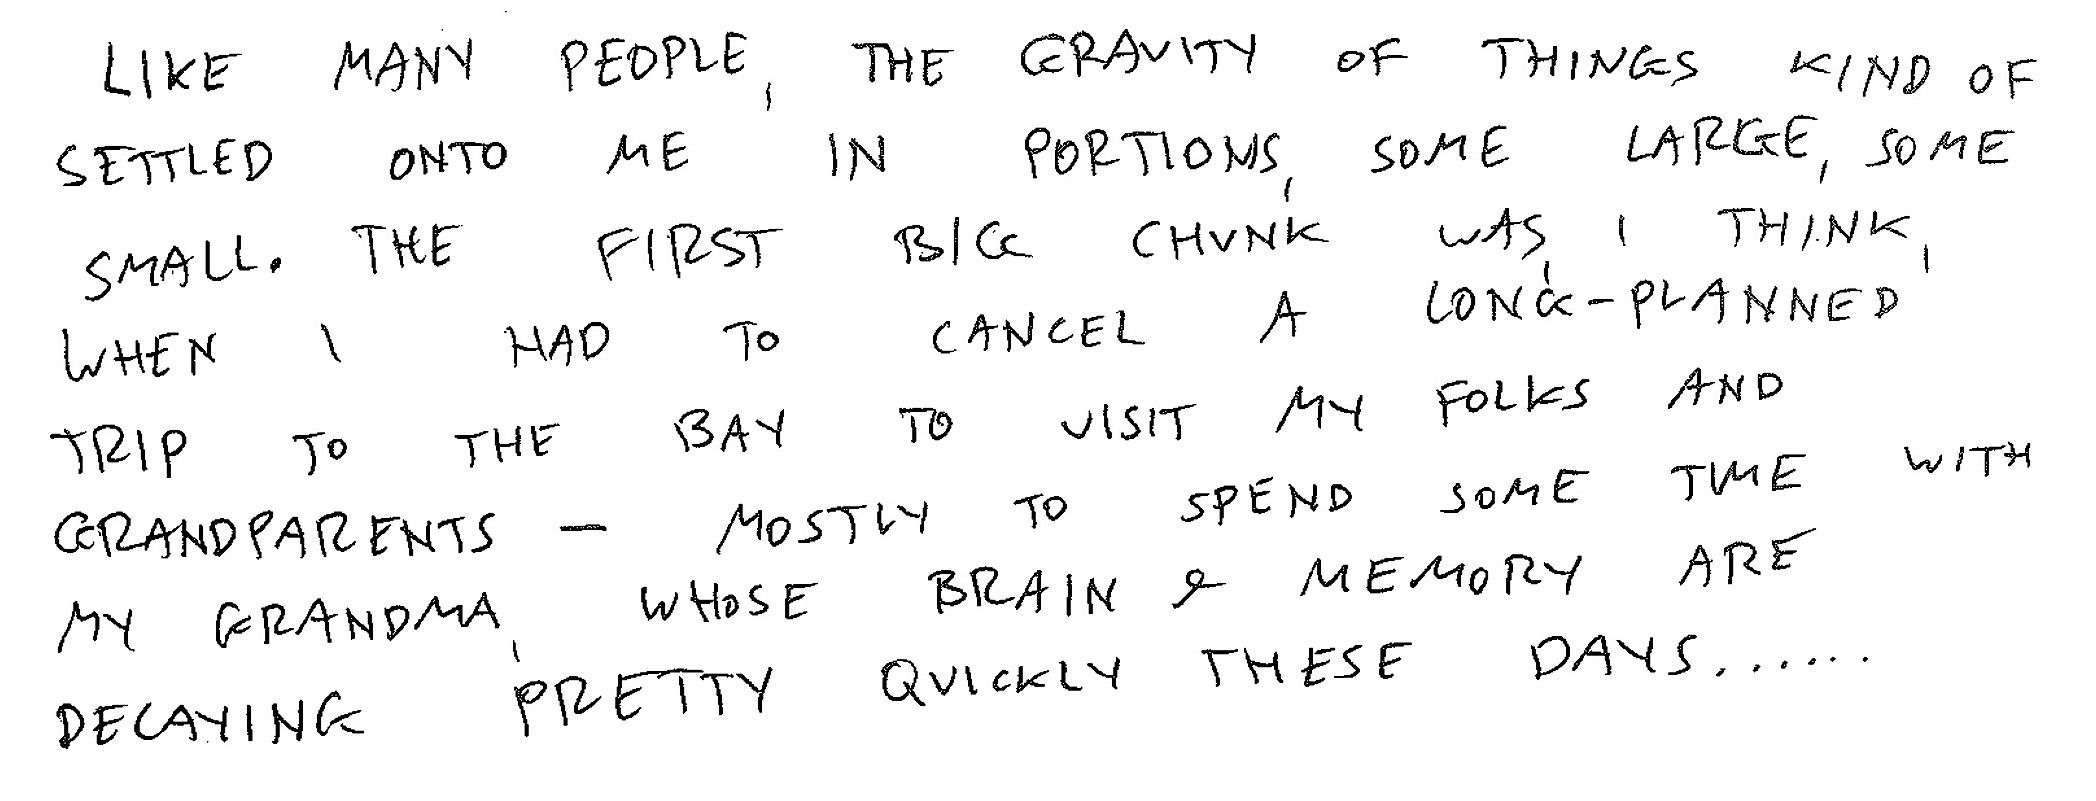 LIKE MANY PEOPLE, THE GRAVITY OF THINGS KIND OF
SETTLED ONTO ME IN PORTIONS, SOME LARGE, SOME
SMALL. THE FIRST BIG CHUNK WAS, I THINK,
WHEN I HAD TO CANCEL A LONG-PLANNED
TRIP TO THE BAY TO VISIT MY FOLKS AND
GRANDPARENTS — MOSTLY TO SPEND SOME TIME WITH
MY GRANDMA, WHOSE BRAIN & MEMORY ARE
DECAYING PRETTY QUICKLY THESE DAYS......